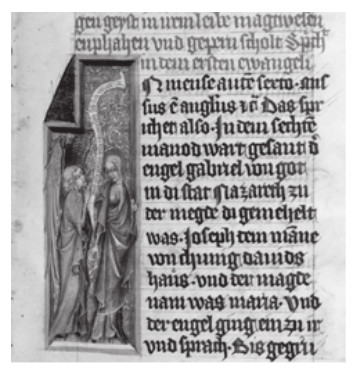 gen geyst in irem leibe magtwesen
enphahen vnd gepern scholt Sprich
in dem ersten ewangeli
N mense autē sexto · mis
sus ē angl̄us ⁊c̄ Das spr
ichet also · In dem sechtē
manod wart gesant d̄
engel gabriel von got
in di stat Nazareth zu
der megde di gemehelt
was · Joseph dem māne
von chunig dauids
haus · vnd der magde
nam was maria · Vnd
der engel ging ein zu ir
vnd sprach · Bis gegru